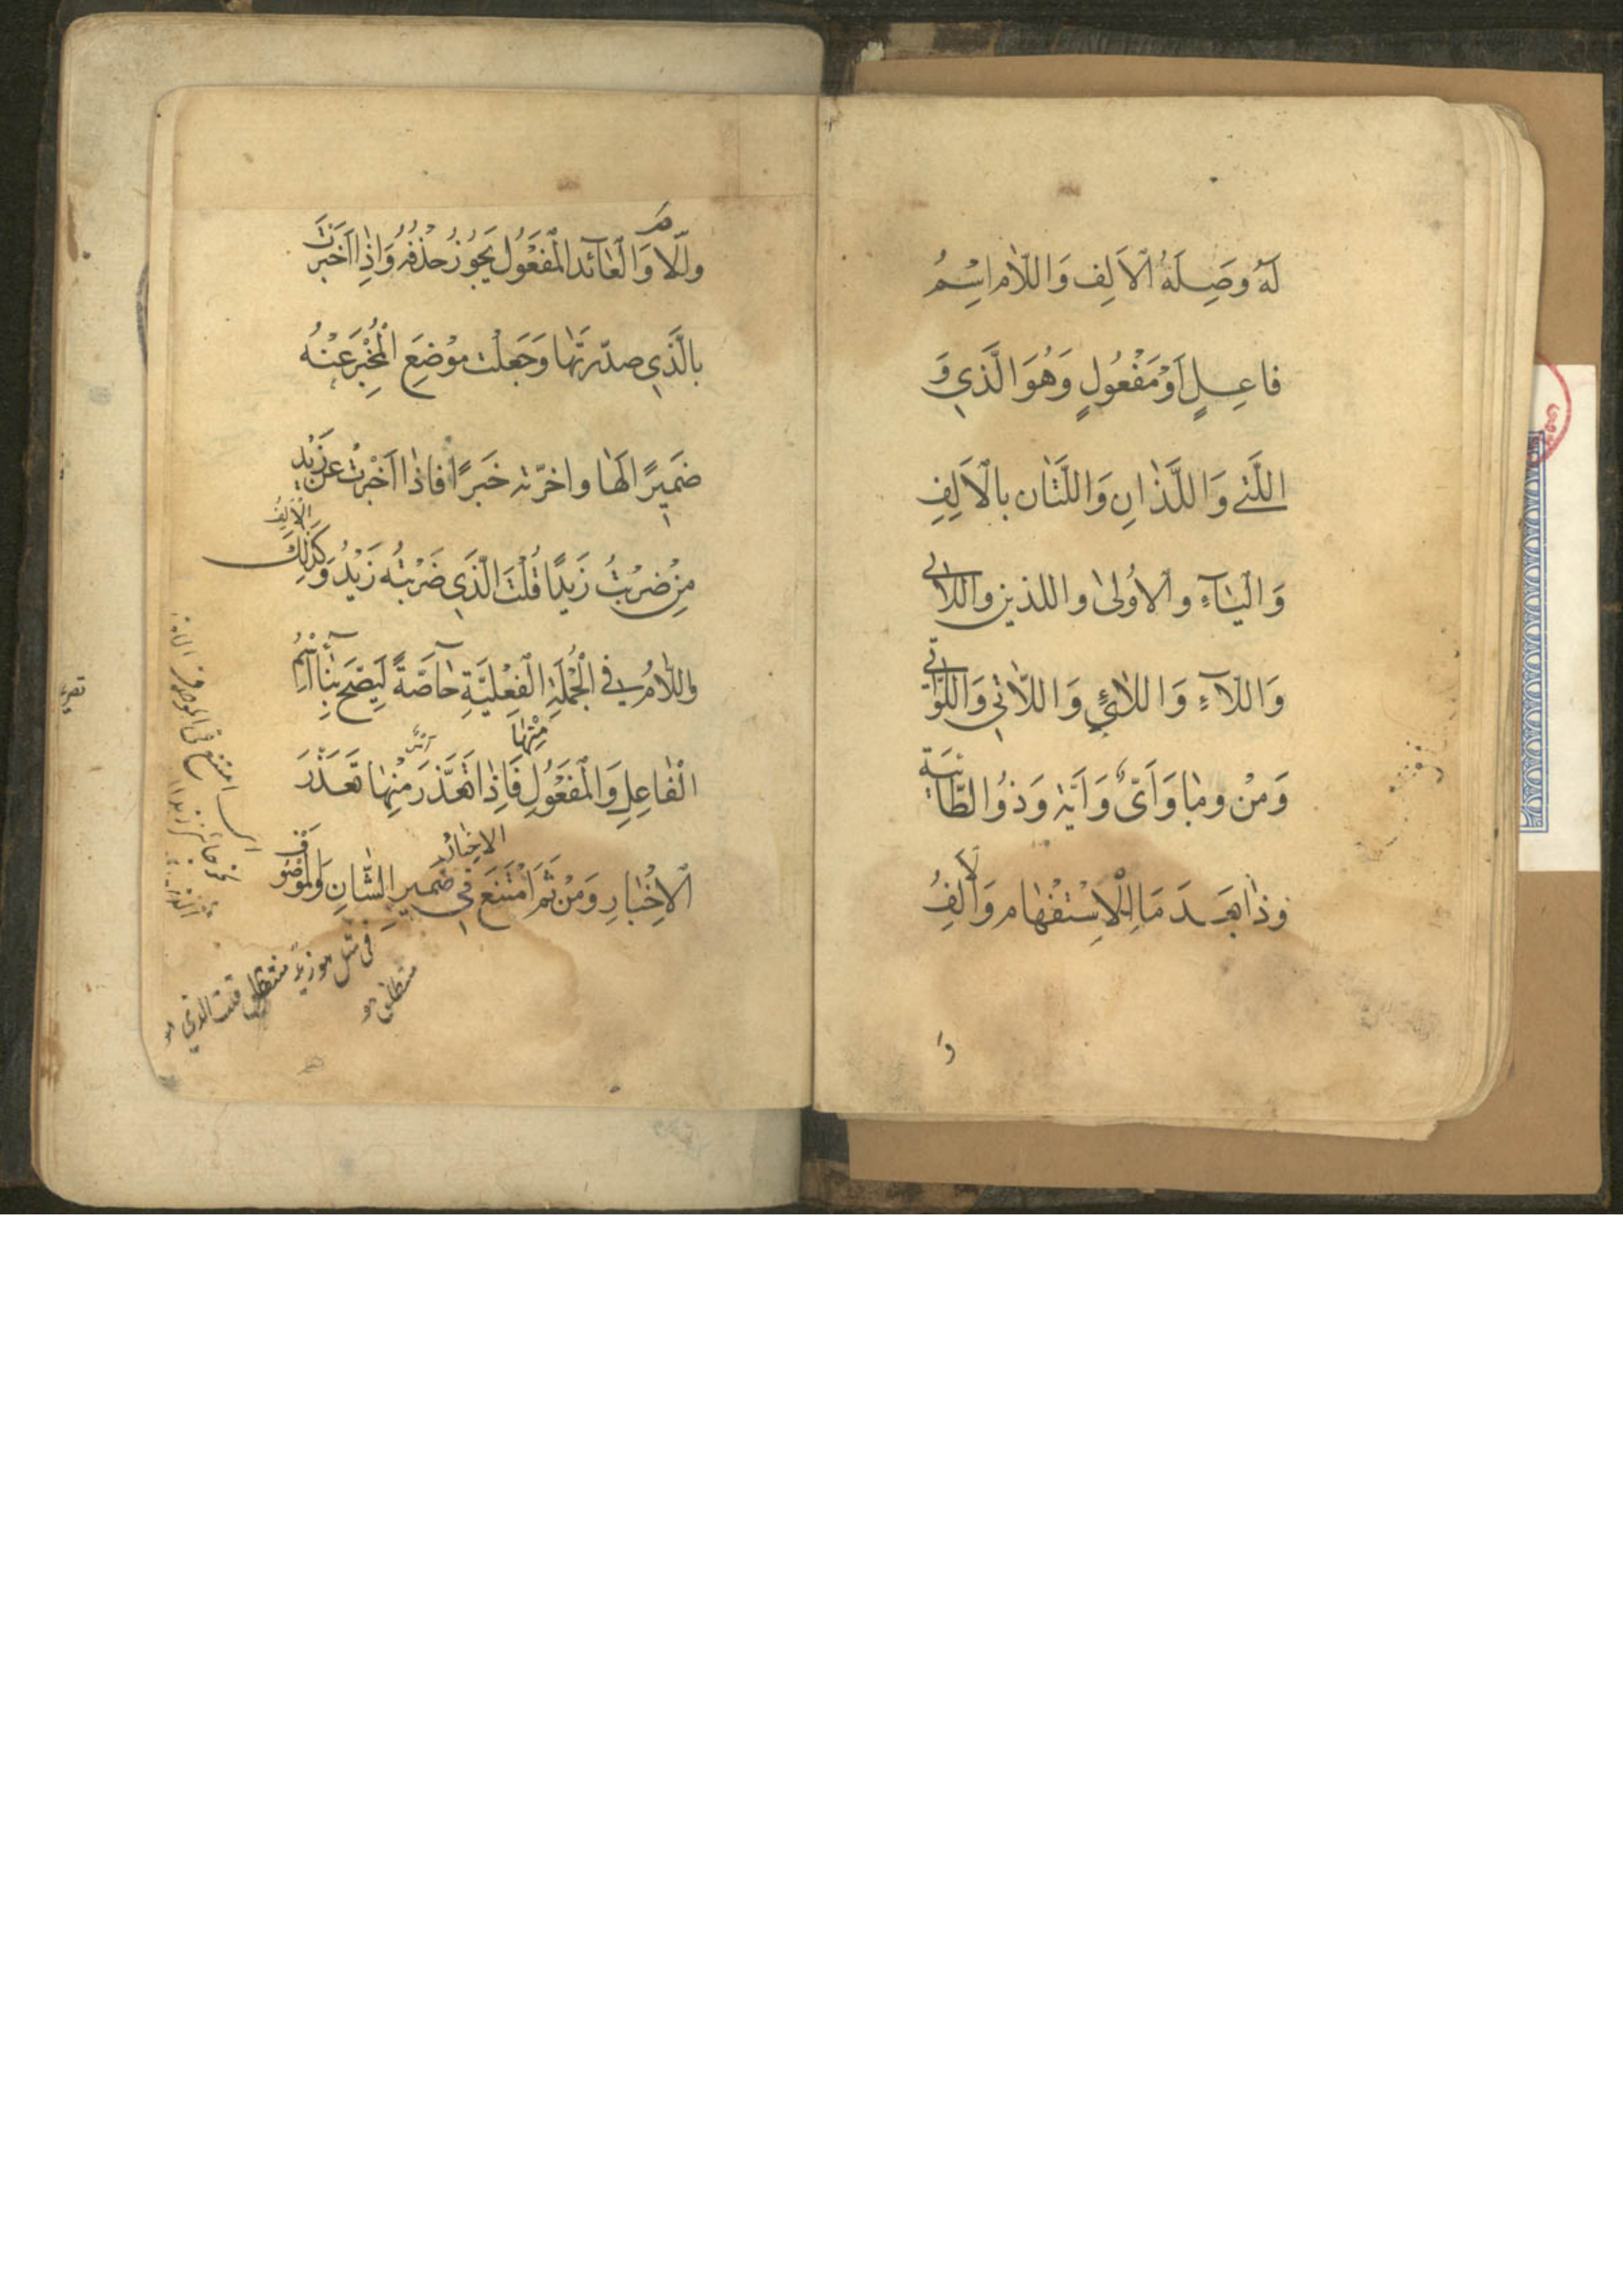 لَهُ وَصِلَةُ الْاَلِفِ وَاللّام اِسْمُ
فاعِلٍ اَوْ مَفْعُولٍ وَهُوَ الَّذي وَ
الَّتي وَاللَّذانِ وَاللَّتان بالْاَلِفِ
وَالْيٰآءِ والْاُولىٰ واللذين واللائي
وَاللّآءِ وَاللائِ وَاللّاتي وَاللَّوَاتي
وَمَنْ وما وَاَيٌّ وَاَيَّة وَذُو الطّائيَّة
وَذٰا بَعْدَ مَا لِلْاِسْتفْهام وَالْاَلِفُ
وَ
واللّام وَالْعٰآئد الْمَفْعُول يَجُوزُ حَذْفُهُ وَاِذٰا اَخْبَرْتَ
بالَّذي صدّرتَها وَجَعَلْت مَوْضِعَ الْمُخْبَرِ عَنْهُ
ضَميرًا لَهٰا واخرّته خَبَرًا فاذٰا اَخْبَرْتَ عن زَيْدٍ
مِنْ ضَرَبْتُ زَيدًا قُلْتَ الّذي ضَرَبْتُه زَيْدٌ وَكَذٰلِكَ الْاَلِفُ
واللّامُ في الْجُمْلَةِ الْفِعْليَّةِ خآصّةً لِيَصِحَّ بِنٰاءُ اسْمِ
الْفاعِلِ وَالْمَفعُولِ فَاِذٰا تَعَذَّرَ اَمْرٌ مِنْهٰا تَعَذَّرَ
مِنْهٰا
الْاِخْبارُ وَمِنْ ثَمَّ اَمْتَنَعَ في ضَميرِ الشّانِ وَالْمَوْصُوفِ
الاخبار
في مثل هو زيد منطلق قلت الذي هو
منطلق هو